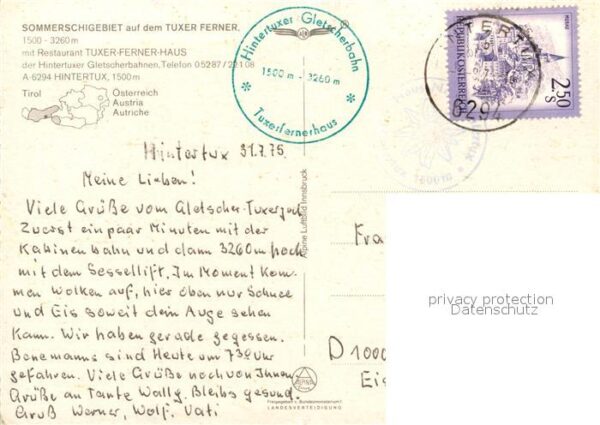 SOMMERSCHIGEBIET auf dem TUXER FERNER,
1500 - 3260 m
mit Restaurant TUXER-FERNER-HAUS
der Hintertuxer Gletscherbahnen, Telefon 05287/22108
A-6294 HINTERTUX, 1500 m
Tirol
Österreich
Austria
Autriche
Hintertuxer Gletscherbahn
1500 m - 3260 m
Tuxerfernerhaus
REPUBLIK ÖSTERREICH
2.50
S
6294
1500m
Hintertux 31.7.75
Meine Lieben!
Viele Grüße vom Gletscher-Tuxerjoch
Zuerst ein paar Minuten mit der
Kabinenbahn und dann 3260m hoch
mit dem Sessellift. Im Moment kom-
men Wolken auf, hier oben nur Schnee
und Eis soweit dein Auge sehen
kann. Wir haben gerade gegessen.
Bonemanns sind Heute um 730 Uhr
gefahren. Viele Grüße noch von Ihnen
Grüße an Tante Wally. Bleibs gesund.
Gruß Werner, Wolf, Vati
Alpine Luftbild Innsbruck
Fra
D 1000
Eis
privacy protection
Datenschutz
Freigegeben v. Bundesministerium f.
LANDESVERTEIDIGUNG